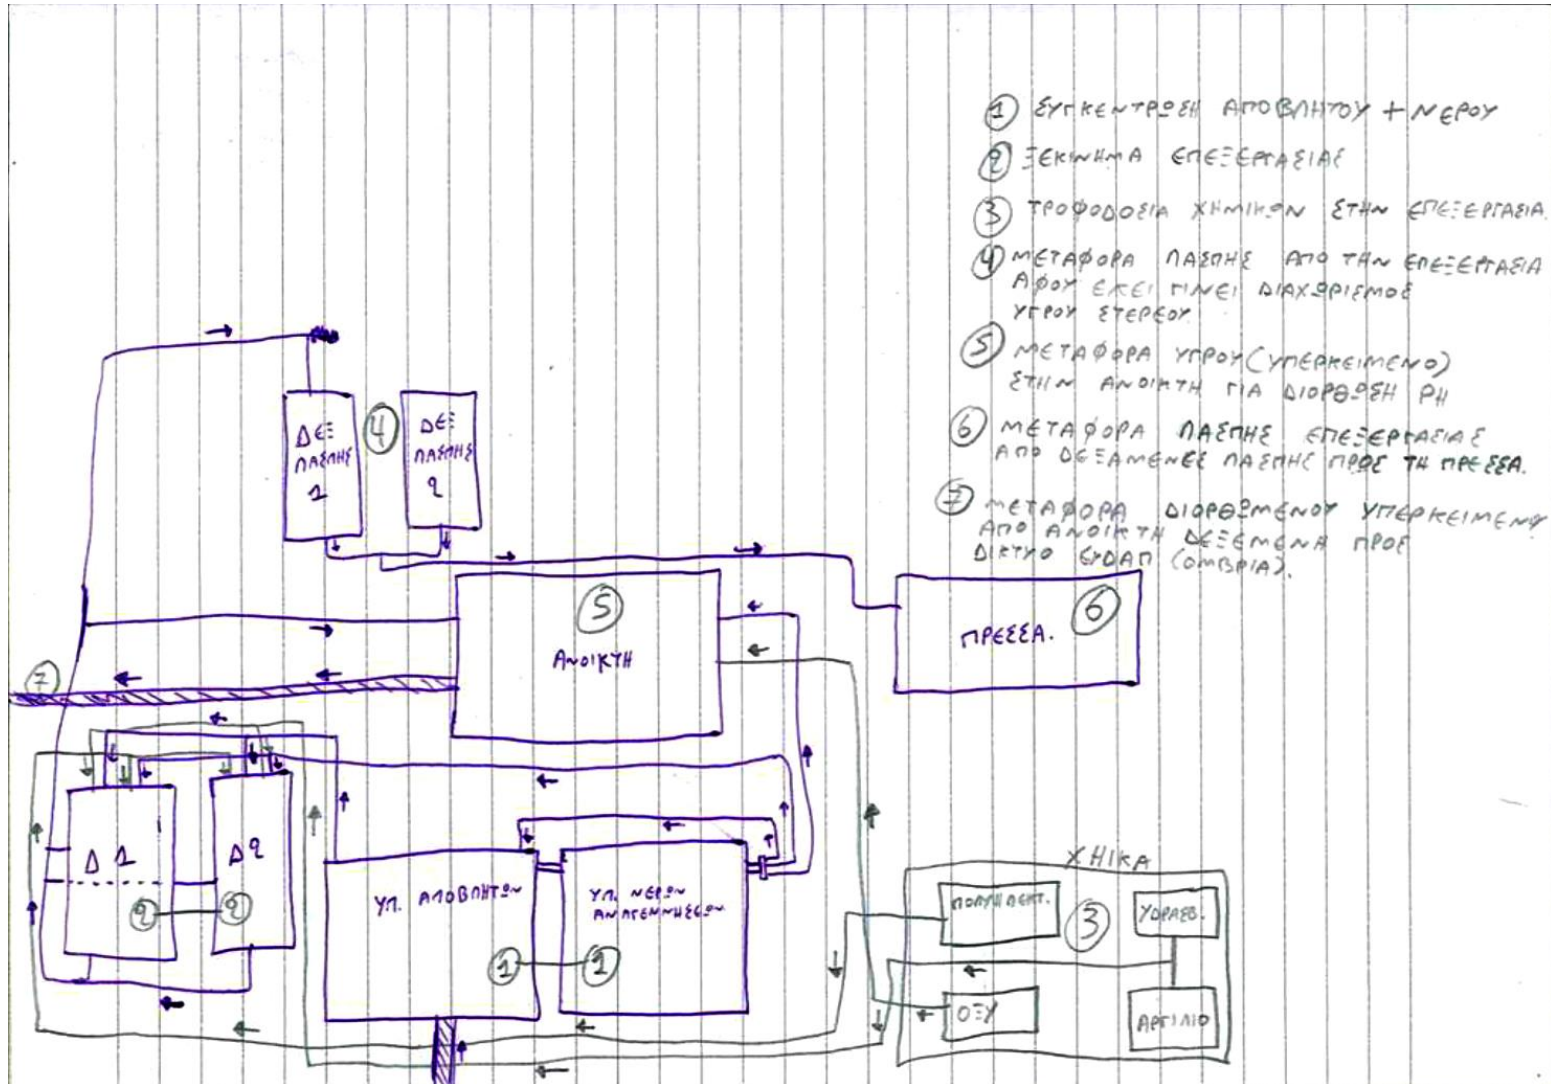 ① ΣΥΓΚΕΝΤΡΩΣΗ ΑΠΟΒΛΗΤΟΥ + ΝΕΡΟΥ
② ΞΕΚΙΝΗΜΑ ΕΠΕΞΕΡΓΑΣΙΑΣ
③ ΤΡΟΦΟΔΟΣΙΑ ΧΗΜΙΚΩΝ ΣΤΗΝ ΕΠΕΞΕΡΓΑΣΙΑ.
④ ΜΕΤΑΦΟΡΑ ΛΑΣΠΗΣ ΑΠΟ ΤΗΝ ΕΠΕΞΕΡΓΑΣΙΑ
ΑΦΟΥ ΕΚΕΙ ΓΙΝΕΙ ΔΙΑΧΩΡΙΣΜΟΣ
ΥΓΡΟΥ ΣΤΕΡΕΟΥ
⑤ ΜΕΤΑΦΟΡΑ ΥΓΡΟΥ (ΥΠΕΡΚΕΙΜΕΝΟ)
ΣΤΗΝ ΑΝΟΙΚΤΗ ΓΙΑ ΔΙΟΡΘΩΣΗ PH
⑥ ΜΕΤΑΦΟΡΑ ΛΑΣΠΗΣ ΕΠΕΞΕΡΓΑΣΙΑΣ
ΑΠΟ ΔΕΞΑΜΕΝΕΣ ΛΑΣΠΗΣ ΠΡΟΣ ΤΗ ΠΡΕΣΣΑ.
⑦ ΜΕΤΑΦΟΡΑ ΔΙΟΡΘΩΜΕΝΟΥ ΥΠΕΡΚΕΙΜΕΝΟΥ
ΑΠΟ ΑΝΟΙΚΤΗ ΔΕΞΕΜΕΝΗ ΠΡΟΣ
ΔΙΚΤΥΟ ΕΥΔΑΠ (ΟΜΒΡΙΑ).
ΔΕΞ
ΛΑΣΠΗΣ
1
④
ΔΕΞ
ΛΑΣΠΗΣ
2
⑤
ΑΝΟΙΚΤΗ
⑥
ΠΡΕΣΣΑ.
⑦
Δ1
②
Δ2
②
ΥΠ. ΑΠΟΒΛΗΤΩΝ
①
ΥΠ. ΝΕΡΩΝ
ΑΝΑΓΕΝΝΗΣΕΩΝ
①
ΧΗΙΚΑ
ΠΟΛΥΗΛΕΚΤ.
③
ΥΔΡΑΣΒ.
ΟΞΥ
ΑΡΓΙΛΙΟ